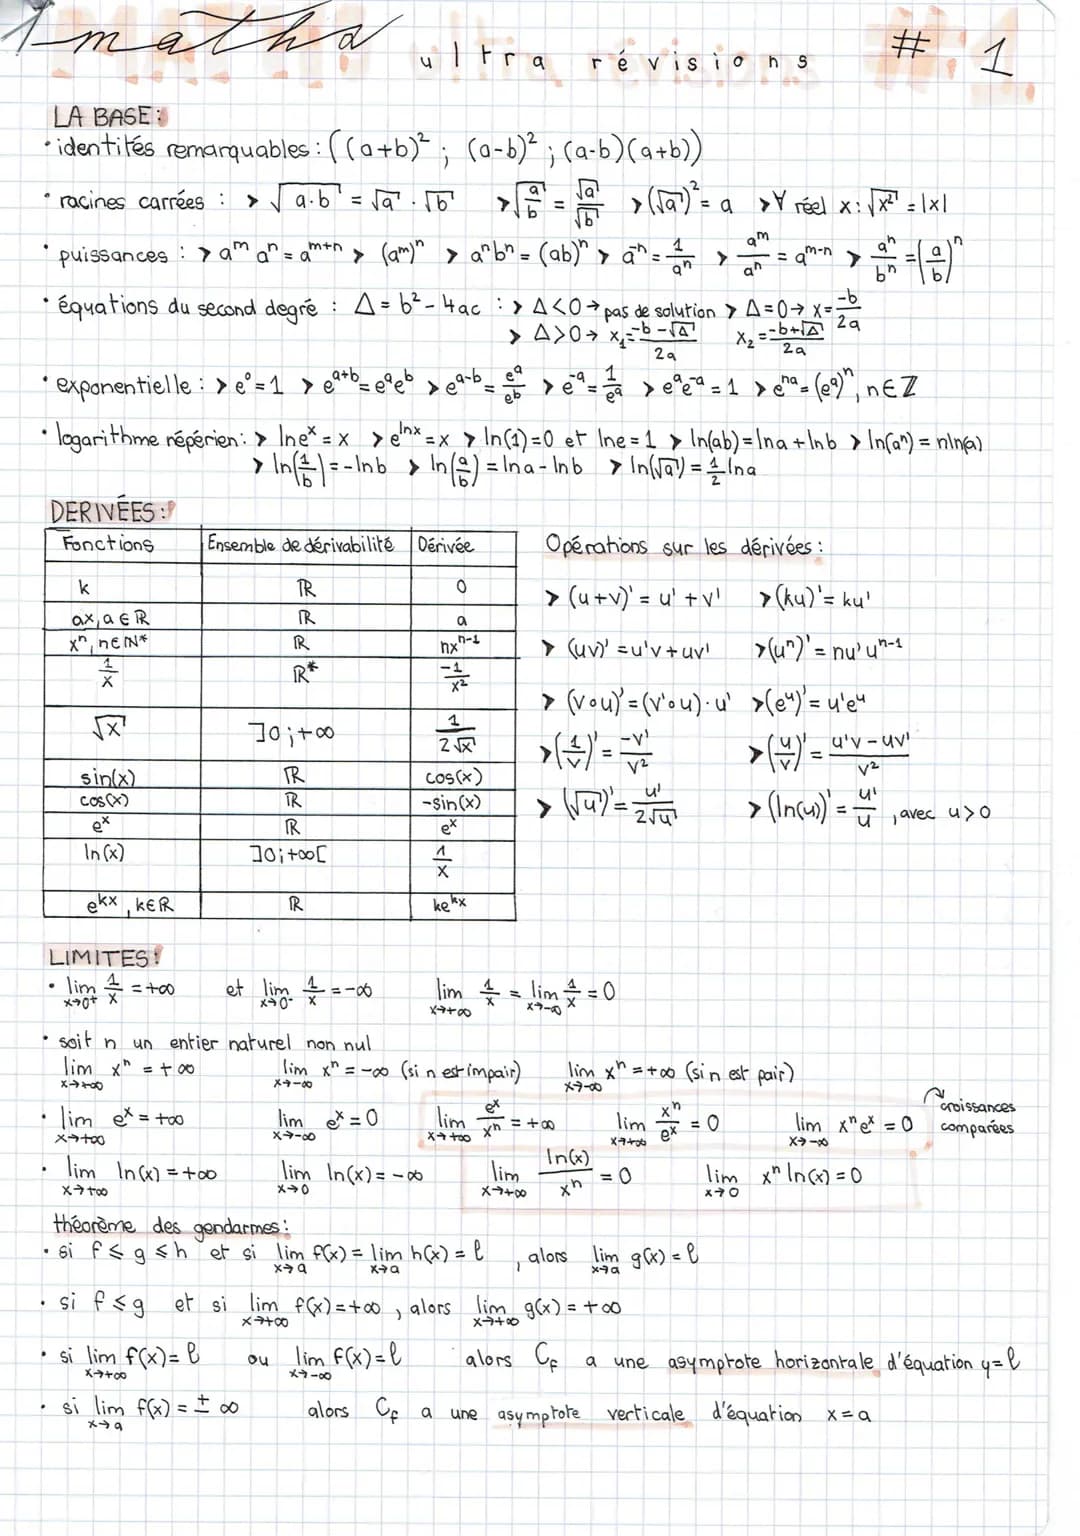 maths ultra révisions #1.
LA BASE:
• identités remarquables : ((a+b)² ; (a-b)² ; (a-b)(a+b))
• racines carrées : > √(a.b) = √a . √b > √(a/b) = √a/√b > (√a)² = a > ∀ réel x : √x² = |x|
• puissances : > aᵐ aⁿ = aᵐ⁺ⁿ > (aᵐ)ⁿ > aⁿbⁿ = (ab)ⁿ > a⁻ⁿ = 1/aⁿ > aᵐ/aⁿ = aᵐ⁻ⁿ > aⁿ/bⁿ = (a/b)ⁿ
• équations du second degré : Δ = b² - 4ac : > Δ<0 → pas de solution > Δ=0 → x = -b/2a
> Δ>0 → x₁ = (-b-√Δ)/2a x₂ = (-b+√Δ)/2a
• exponentielle : > e⁰ = 1 > e^(a+b) = e^a e^b > e^(a-b) = e^a/e^b > e^-a = 1/e^a > e^a e^-a = 1 > e^(na) = (e^a)ⁿ, n∈ℤ
• logarithme népérien : > lne^x = x > e^(lnx) = x > ln(1)=0 et lne=1 > ln(ab) = lna + lnb > ln(aⁿ) = nln(a)
> ln(1/b) = -lnb > ln(a/b) = lna - lnb > ln(√a) = 1/2 lna
DERIVÉES :
Fonctions Ensemble de dérivabilité Dérivée Opérations sur les dérivées :
k ℝ 0
ax, a∈ℝ ℝ a
xⁿ, n∈ℕ* ℝ nxⁿ⁻¹
1/x ℝ* -1/x²
√x ]0;+∞ 1/(2√x)
sin(x) ℝ cos(x)
cos(x) ℝ -sin(x)
e^x ℝ e^x
ln(x) ]0;+∞[ 1/x
e^(kx), k∈ℝ ℝ ke^(kx)
> (u+v)' = u' + v' > (ku)' = ku'
> (uv)' = u'v + uv' > (uⁿ)' = nu'uⁿ⁻¹
> (v∘u)' = (v'∘u) . u' > (e^u)' = u'e^u
> (1/v)' = -v'/v² > (u/v)' = (u'v - uv')/v²
> (√u)' = u'/(2√u) > (ln(u))' = u'/u, avec u>0
LIMITES :
• lim x→0⁺ 1/x = +∞ et lim x→0⁻ 1/x = -∞ lim x→+∞ 1/x = lim x→-∞ 1/x = 0
• soit n un entier naturel non nul
lim x→+∞ xⁿ = +∞ lim x→-∞ xⁿ = -∞ (si n est impair) lim x→-∞ xⁿ = +∞ (si n est pair)
• lim x→+∞ e^x = +∞ lim x→-∞ e^x = 0 lim x→+∞ e^x/xⁿ = +∞ lim x→+∞ xⁿ/e^x = 0 lim x→-∞ xⁿe^x = 0 croissances comparées
• lim x→+∞ ln(x) = +∞ lim x→0 ln(x) = -∞ lim x→+∞ ln(x)/xⁿ = 0 lim x→0 xⁿ ln(x) = 0
théorème des gendarmes :
• si f ⩽ g ⩽ h et si lim x→a f(x) = lim x→a h(x) = ℓ, alors lim x→a g(x) = ℓ
• si f ⩽ g et si lim x→+∞ f(x) = +∞, alors lim x→+∞ g(x) = +∞
• si lim x→+∞ f(x) = ℓ ou lim x→-∞ f(x) = ℓ alors Cf a une asymptote horizontale d'équation y=ℓ
• si lim x→a f(x) = ± ∞ alors Cf a une asymptote verticale d'équation x = a